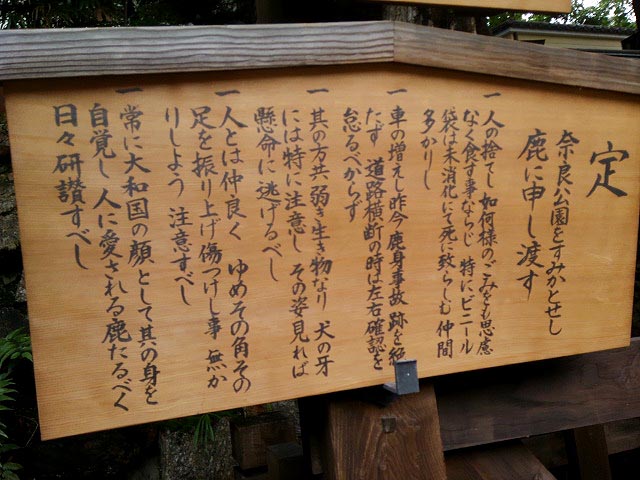 定
奈良公園をすみかとせし
鹿に申し渡す
一 人の捨てし如何様のごみをも思慮
なく食す事ならじ 特にビニール
袋は未消化にて死に致らしむ 仲間
多かりし
一 車の増えし昨今鹿身事故跡を絶
たず 道路横断の時は左右確認を
怠るべからず
一 其の方共弱き生き物なり 犬の牙
には特に注意し その姿見れば
懸命に逃げるべし
一 人とは仲良く ゆめその角その
足を振り上げ傷つけし事 無か
りしよう 注意すべし
一 常に大和国の顔として其の身を
自覚し 人に愛される鹿たるべく
日々研讃すべし